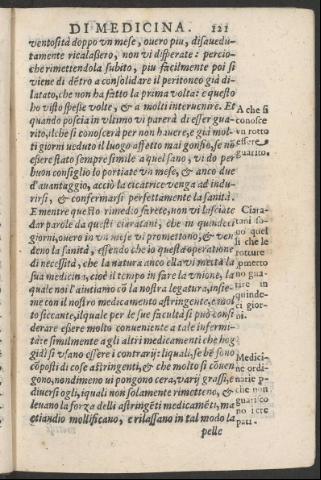 DI MEDICINA. 121
ventosità doppo vn mese, ouero piu, disauedu-
tamente ricalassero, non vi disperate: percio-
che rimettendola subito, piu facilmente poi si
viene di dẽtro a consolidare il peritoneo già di-
latato, che non ha fatto la prima volta: e questo
ho visto spesse volte, & a molti interuenire. Et
quando poscia in vltimo vi parerà di esser gua-
rito, ilche si conoscerà per non hauere, e già mol-
ti giorni ueduto il luogo assetto mai gonfio, se nõ
essere stato sempre simile a quel sano, vi do per
buon consiglio lo portiate vn mese, & anco due
d'auantaggio, acciò la cicatrice venga ad indu-
rirsi, & confermarsi perfettamente la sanità.
E mentre questo rimedio farete, non vi lasciate
dar parole da questi ciaratani, che in quindeci
giorni, ouero in vn mese vi promettono, & ven
deno la sanità, essendo che in questa operatione
di necessità, che la natura anco ella vi metta la
sua medicina, cioè il tempo in fare la vnione, la
quale noi l'aiutiamo cõ la nostra legatura, insie-
me con il nostro medicamento astringente, e mol
to siccante, ilquale per le sue facultà si può consi
derare essere molto conueniente a tale infermi-
tà: e similmente a gli altri medicamenti che hog
gidì si vsano essere i contrarij: liquali, se bẽ sono
cõposti di cose astringenti, & che molto si cõuen
gono, nondimeno ui pongono cera, varij grassi, e
diuersi ogli, iquali non solamente rimettono, &
leuano la forza delli astringẽti medicamẽti, ma
etiandio mollificano, e rilassano in tal modo la
pelle
A che si
conosce
vn rotto
essere
guarito.
Ciara-
tani so-
no quel
li che le
rotture
pmetto
no gua-
rire in
quinde-
ci gior-
ni.
Medici-
ne ordi-
narie p-
che non
guarisco
no i cre
pati.